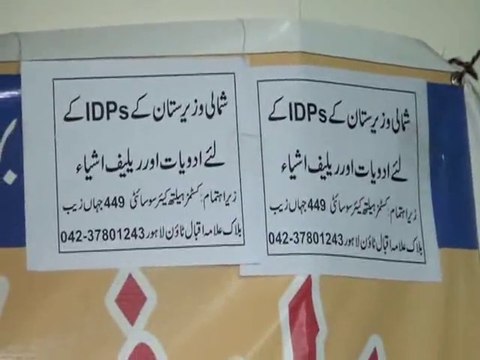 شمالی وزیرستان کے IDPs کے
لئے ادویات اور ریلیف اشیاء
زیر اہتمام: کسٹمز ہیلتھ کیئر سوسائٹی 449 جہاں زیب
بلاک علامہ اقبال ٹاؤن لاہور 042-37801243
شمالی وزیرستان کے IDPs کے
لئے ادویات اور ریلیف اشیاء
زیر اہتمام: کسٹمز ہیلتھ کیئر سوسائٹی 449 جہاں زیب
بلاک علامہ اقبال ٹاؤن لاہور 042-37801243